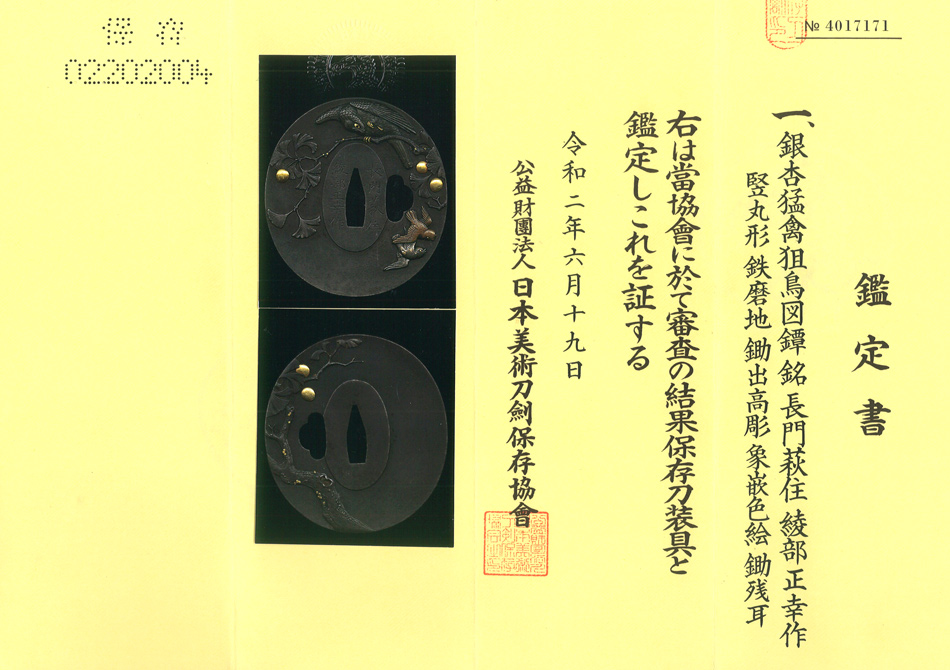 № 4017171
鑑定書
一、銀杏猛禽狙鳥図鐔 銘 長門萩住 綾部正幸作
竪丸形 鉄磨地 鋤出高彫 象嵌色絵 鋤残耳
右は當協會に於て審査の結果保存刀装具と
鑑定しこれを証する
令和二年六月十九日
公益財團法人 日本美術刀劍保存協會
保存
02202004